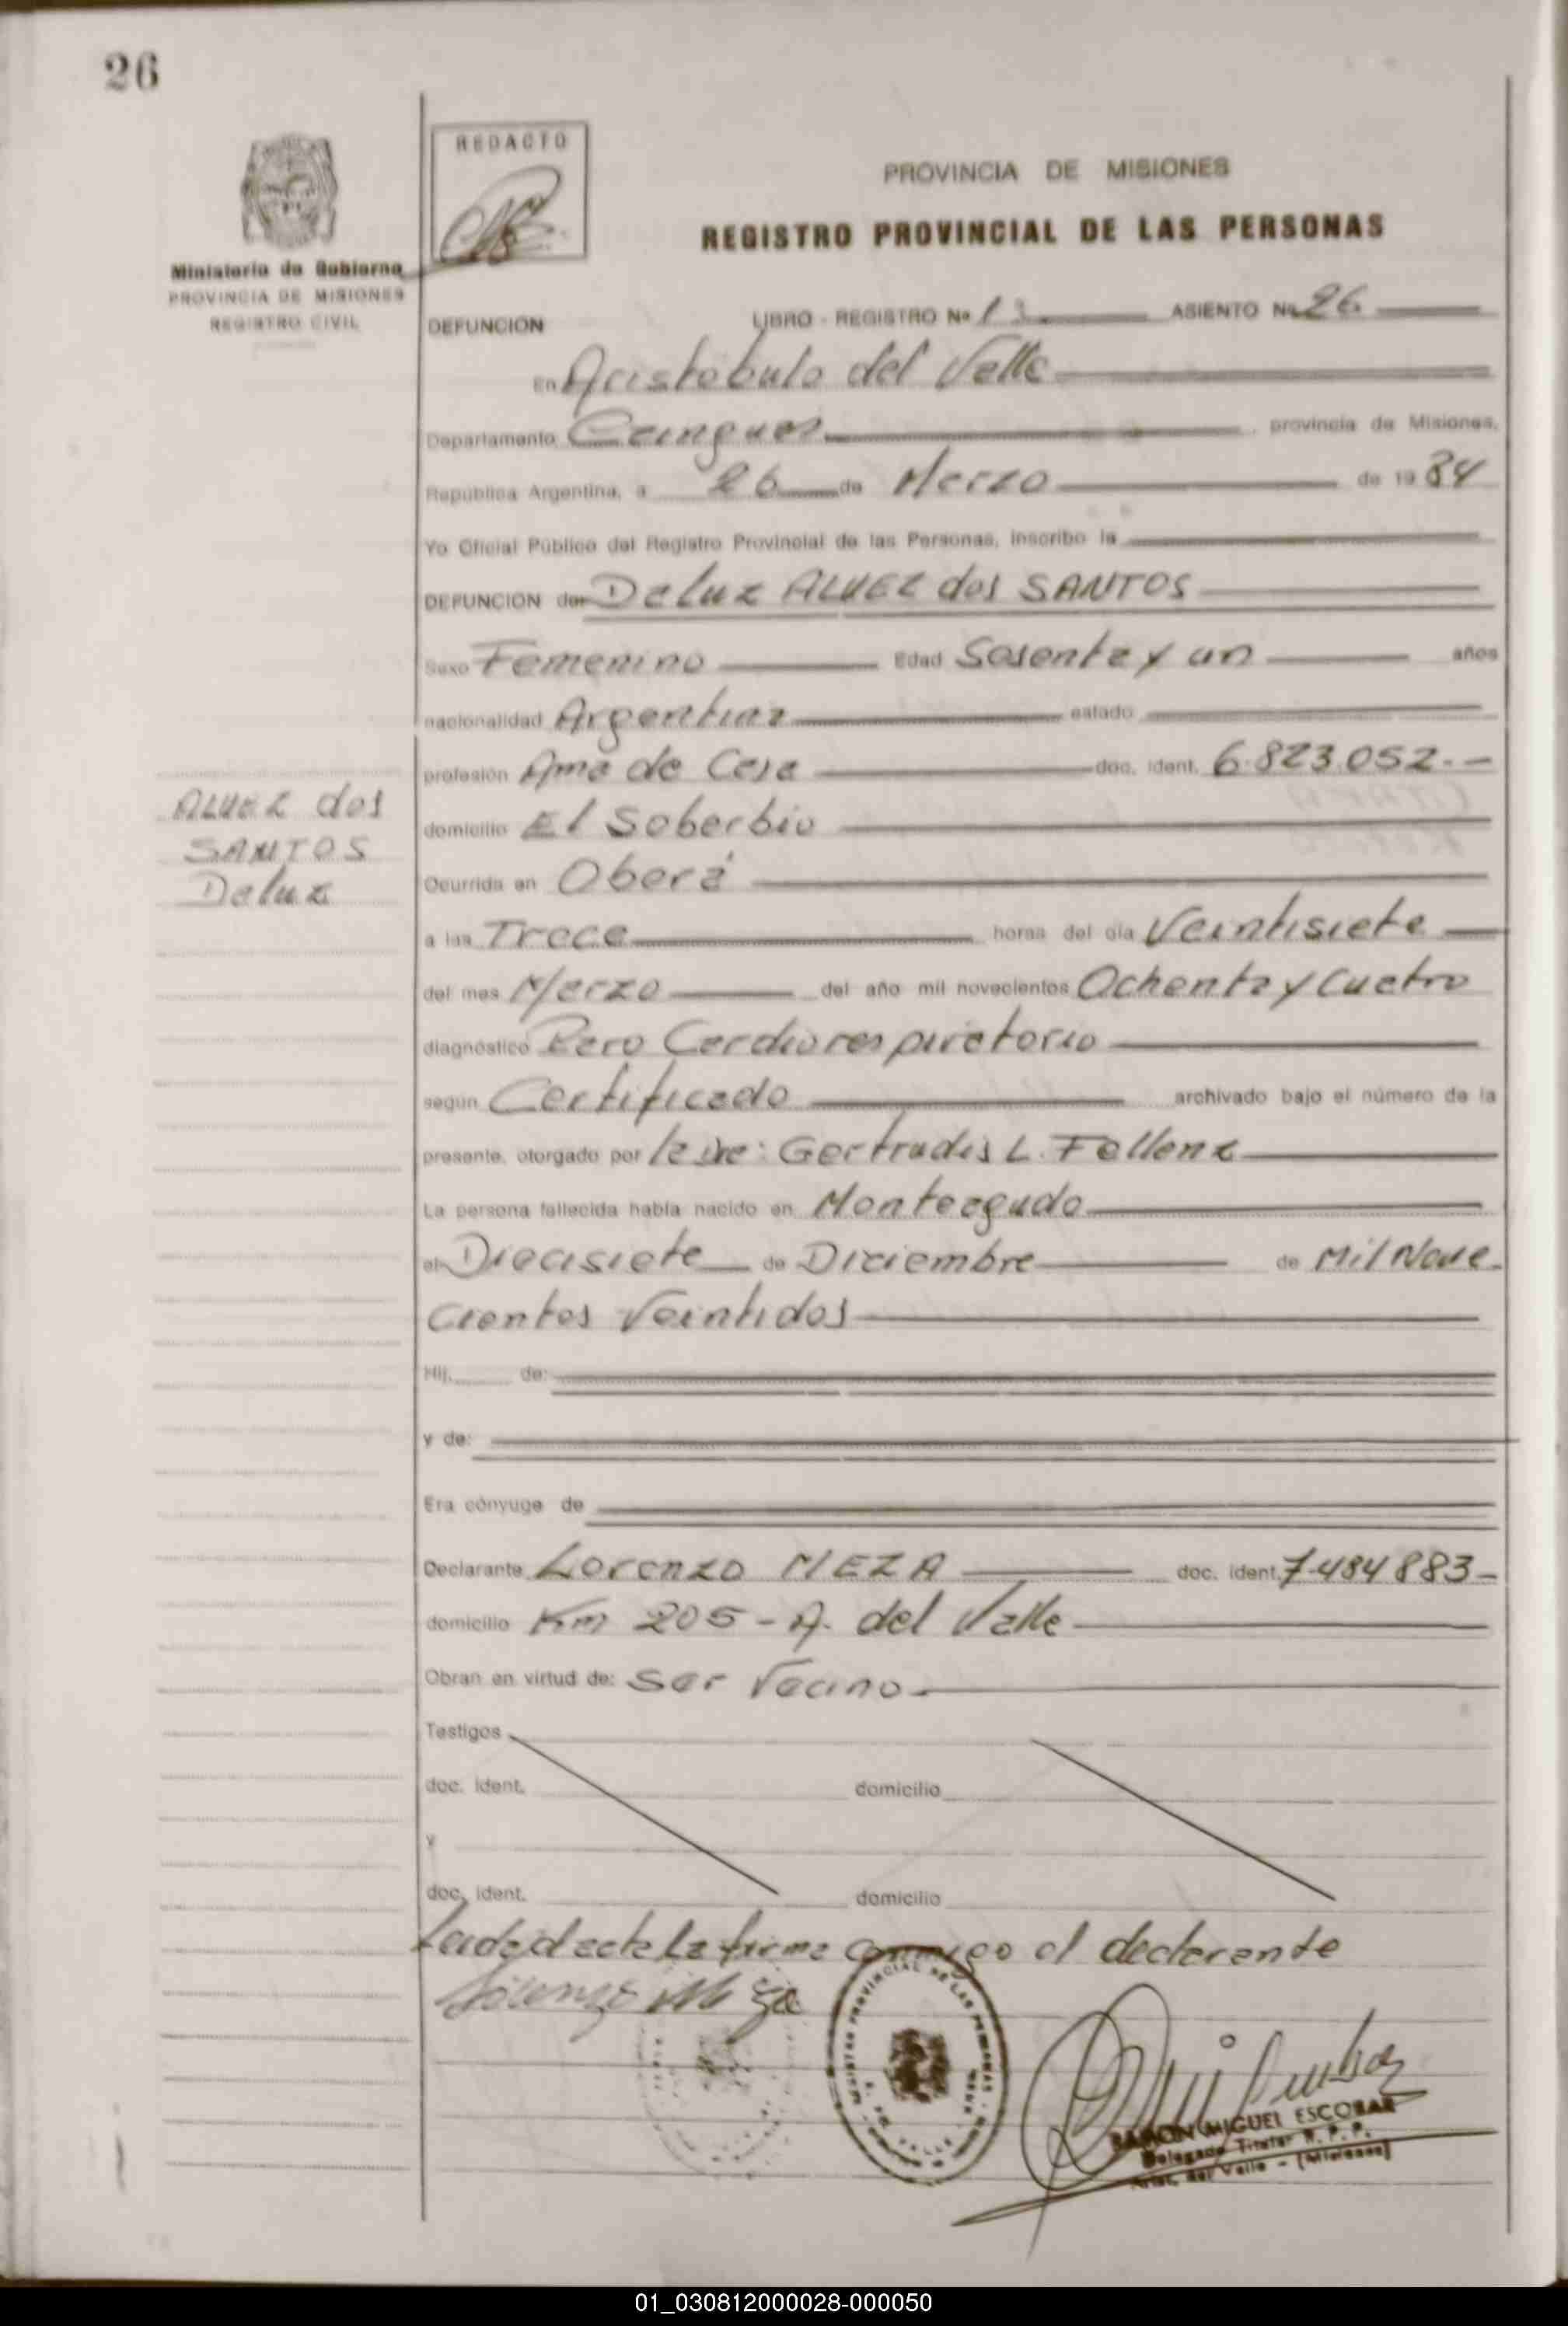 26
REDACTO
PROVINCIA DE MISIONES
REGISTRO PROVINCIAL DE LAS PERSONAS
Ministerio de Gobierno
PROVINCIA DE MISIONES
REGISTRO CIVIL
DEFUNCION LIBRO - REGISTRO Nº ASIENTO Nº 26
En Aristobulo del Valle
Departamento Cainguas provincia de Misiones,
República Argentina, a 26 de Marzo de 1984
Yo Oficial Público del Registro Provincial de las Personas, inscribo la
DEFUNCION de: Deluz ALVEZ dos SANTOS
Sexo Femenino Edad Sesenta y un años
nacionalidad Argentina estado
profesión Ama de Casa doc. ident. 6.823.052.-
ALVEZ dos
SANTOS
Deluz
domicilio El Soberbio
Ocurrida en Oberá
a las Trece horas del día Veintisiete
del mes Marzo del año mil novecientos Ochenta y Cuatro
diagnóstico Paro Cardiorespiratorio
según Certificado archivado bajo el número de la
presente, otorgado por la Dra: Gertrudis L.
La persona fallecida había nacido en Monteagudo
el Diecisiete de Diciembre de Mil Nove
cientos Veintidos
Hij de:
y de:
Era cónyuge de
Declarante Lorenzo MEZA doc. ident. 7.484.883-
domicilio Km 205 - A. del Valle
Obran en virtud de: Ser Vecino.
Testigos
doc. ident. domicilio
y
doc. ident. domicilio
Leida el acta la firma conmigo el declarante
Lorenzo Meza
REGISTRO PROVINCIAL DE LAS PERSONAS
RAMON MIGUEL ESCOBAR
Delegado Titular R. P. P.
Arist. del Valle - (Misiones)
01_030812000028-000050